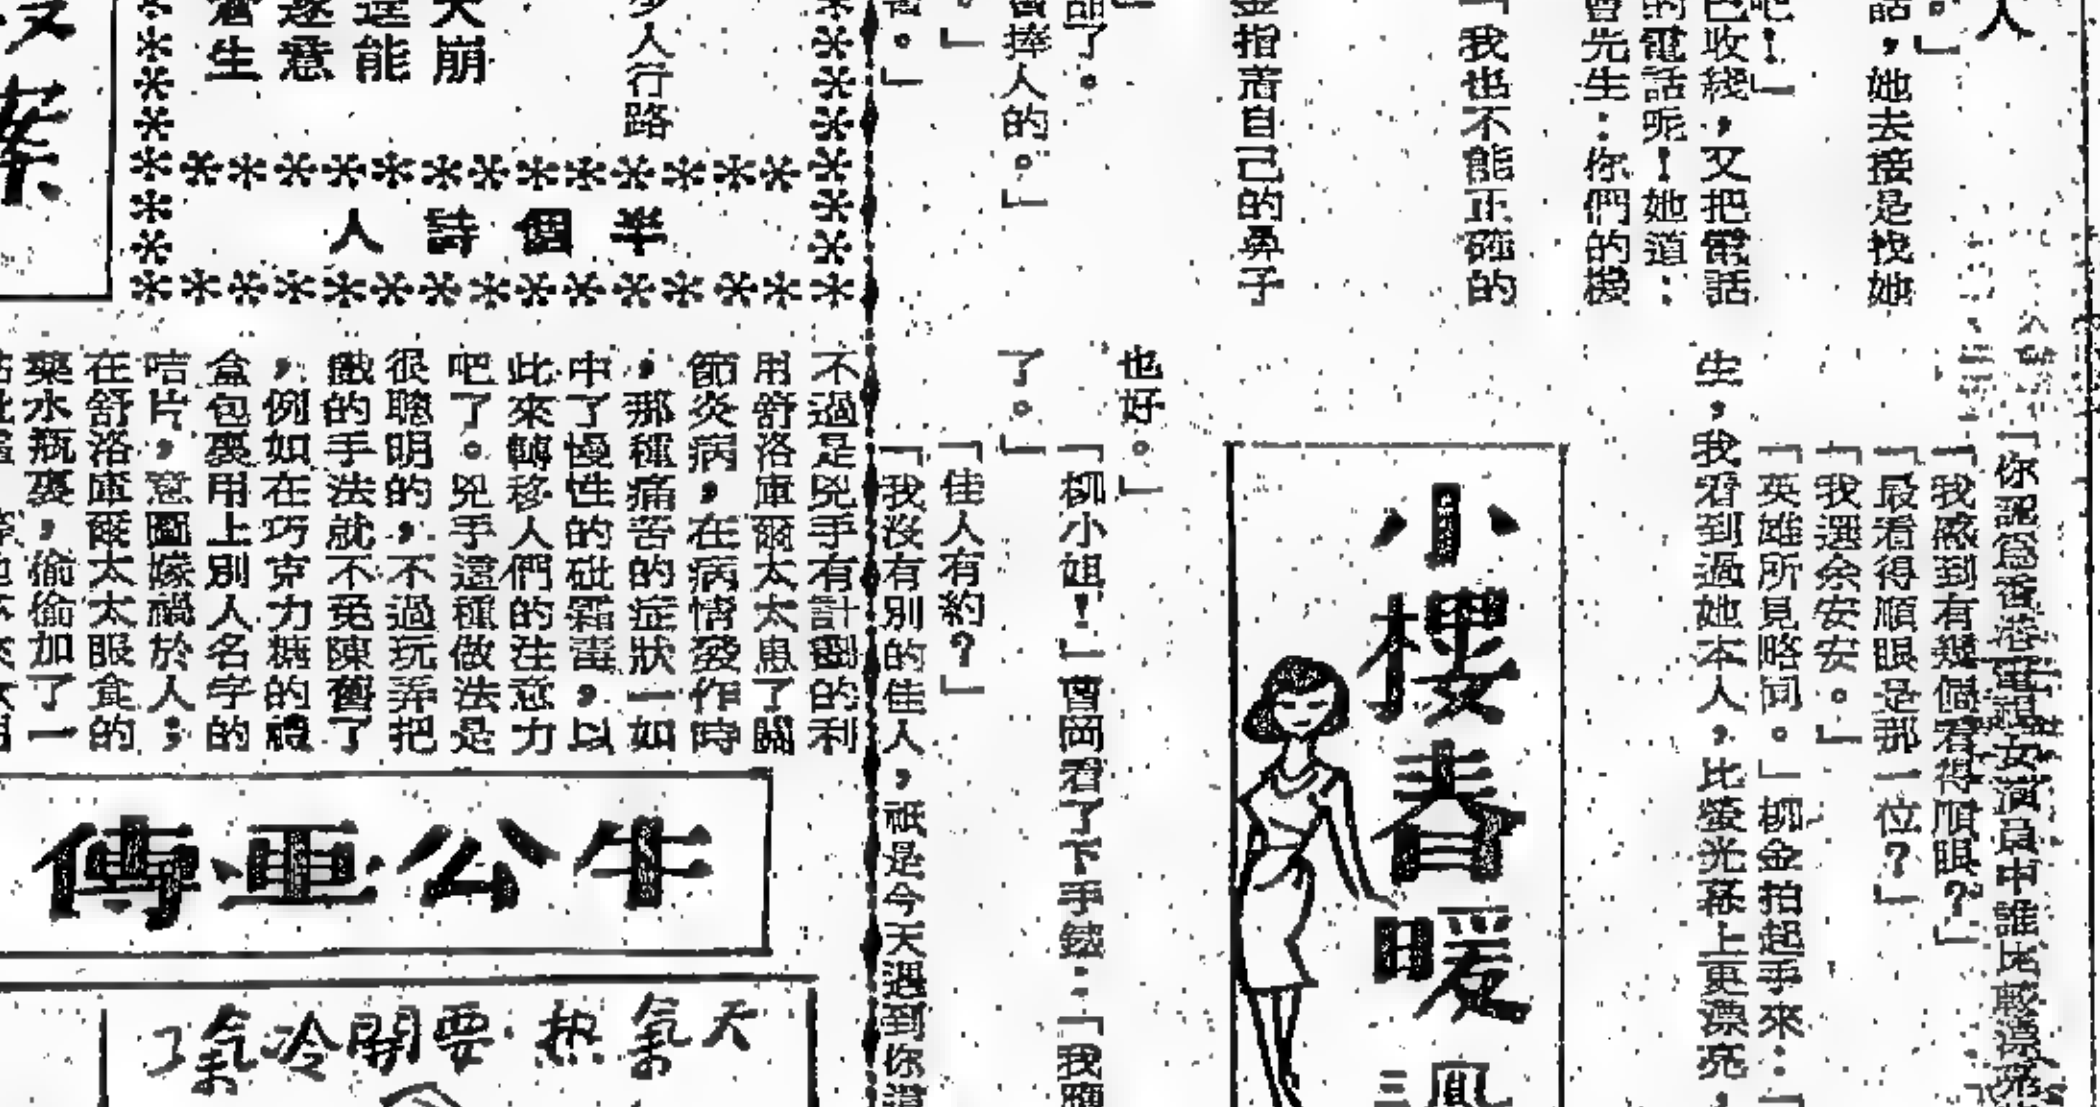 人
。」
話，她去接是找她
吧！」
色收綫，又把電話
的電話呢！她道：
曾先生：你們的機
「我也不能正確的
金指着自己的鼻子
了。
人的。」
。」
「你認爲香港電視女演員中誰比較漂亮
「我感到有幾個看得順眼？」
「最看得順眼是那一位？」
「我選余安安。」
「英雄所見略同。」柳金拍起手來：「
生，我看到過她本人，比螢光幕上更漂亮，
小樓春暖
鳳三
也好。」
「柳小姐！」曾岡看了下手錶：「我
了。」
「佳人有約？」
「我沒有別的佳人，祇是今天遇到你這
人行路
天崩
達能
遂意
蒼生
半個詩人
案
不過是兇手有計劃的利
用舒洛庫爾太太患了關
節炎病，在病情發作時
，那種痛苦的症狀一如
中了慢性的砒霜毒，以
此來轉移人們的注意力
吧了。兇手這種做法是
很聰明的，不過玩弄把
戲的手法就不免陳舊了
，例如在巧克力糖的禮
盒包裹用上別人名字的
咭片，意圖嫁禍於人；
在舒洛庫爾太太眼食的
藥水瓶裏，偷偷加了一
牛公亞傳
天氣热要開冷氣